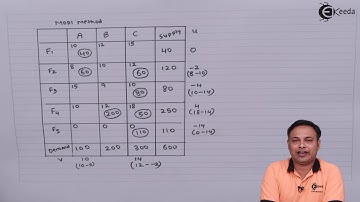 Ekeeda
MODI Method
A B C Supply U
F1 10 40 12 15 40 0
F2 8 60 10 12 60 120 -2
(8-10)
F3 15 9 10 80 80 -4
(10-14)
F4 10 12 200 18 50 250 4
(18-14)
F5 0 0 0 110 110 -14
(0-14)
Demand 100 200 300 600
V 10 14
(10-0) (12--2)